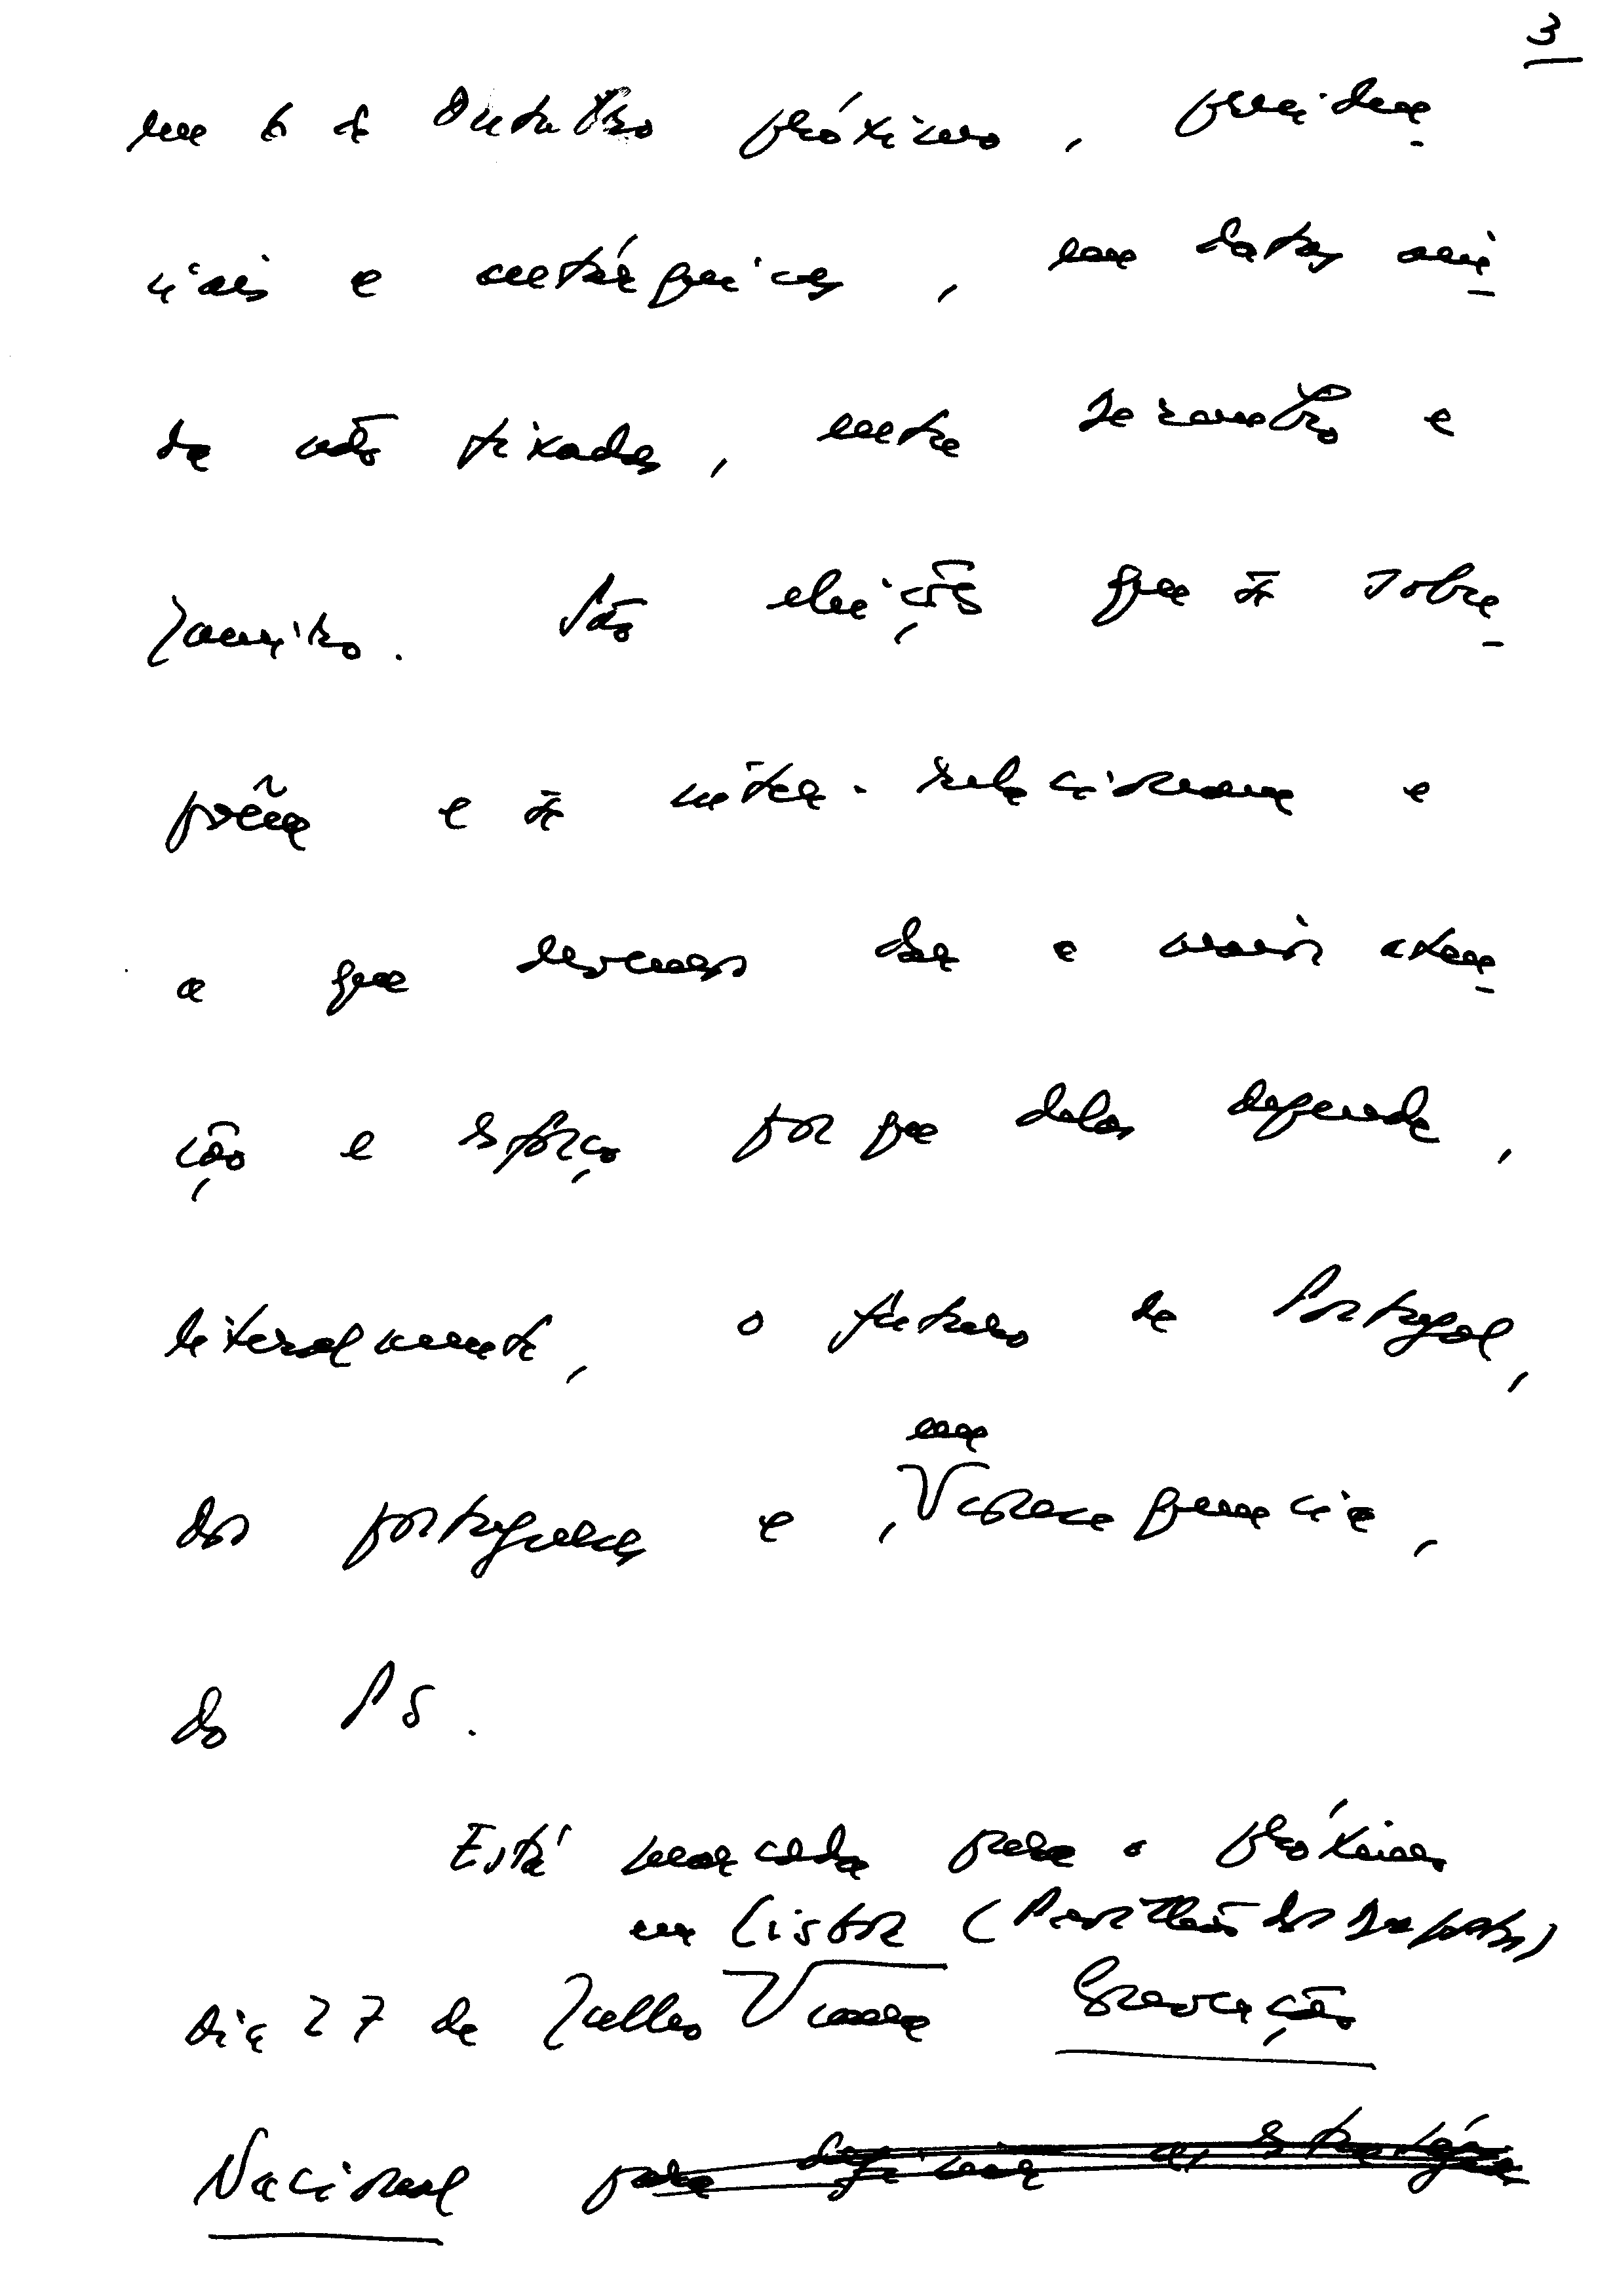 3
em 6 de Outubro próximo, presiden-
ciais e autárquicas, em datas ain-
da não fixadas, entre Dezembro e
Janeiro. São eleições que se sobre-
põem e se inter-relacionam e
a que devemos dar a maior aten-
ção e esforço porque delas depende,
literalmente, o futuro de Portugal,
em
dos portugueses e, consequência,
do PS.
Está marcada para o próximo
em Lisboa (Pavilhão dos Desportos)
dia 27 de Julho uma Convenção
Nacional para definir a estratégia